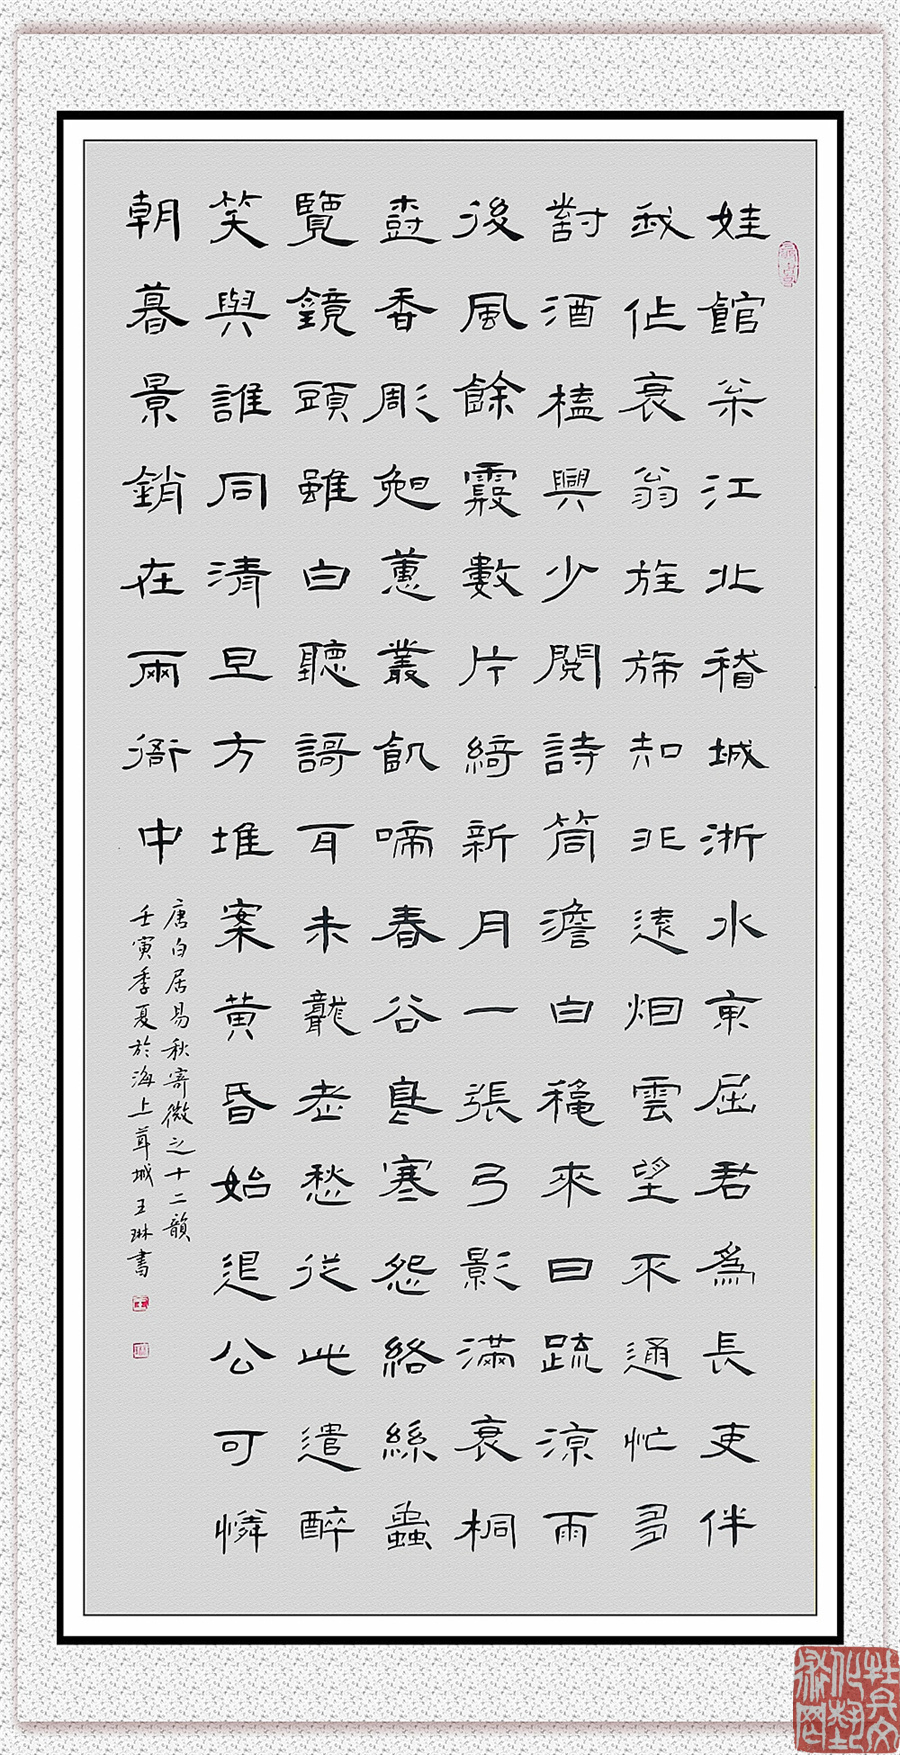 娃館枀江北稽城浙水東屈君為長吏伴
我作衰翁旌旆知非遠烟雲望不通忙多
對酒榼興少閱詩筒澹白穐來日疏涼雨
後風餘霞數片綺新月一張弓影滿衰桐
樹香彫晚蕙叢飢啼春谷鳥寒怨絡絲蟲
覽鏡頭雖白聽謌耳未聾老愁從此遣醉
笑與誰同清旦方堆案黃昏始退公可憐
朝暮景銷在兩衙中
唐白居易秋寄微之十二韻
壬寅季夏於海上茸城王琳書